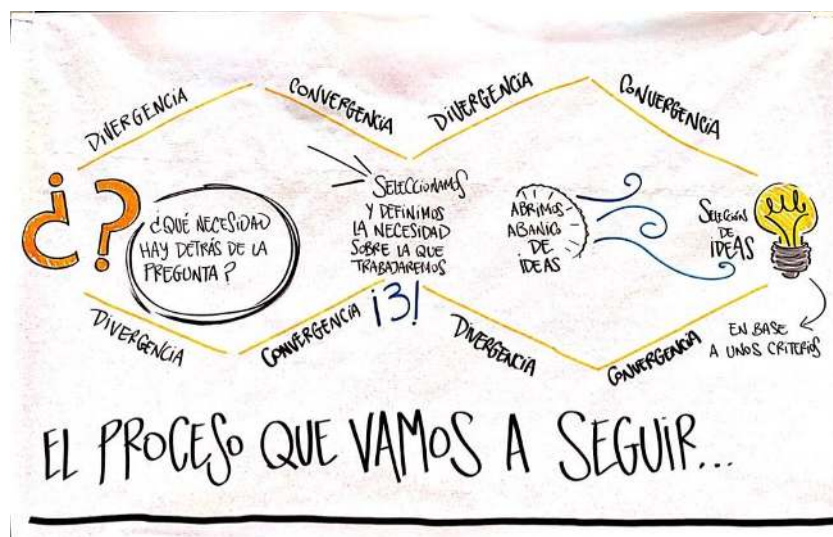 DIVERGENCIA
CONVERGENCIA
DIVERGENCIA
CONVERGENCIA
¿?
¿QUÉ NECESIDAD
HAY DETRÁS DE LA
PREGUNTA?
SELECCIONAMOS
Y DEFINIMOS
LA NECESIDAD
SOBRE LA QUE
TRABAJAREMOS
¡3!
ABRIMOS
ABANICO
DE
IDEAS
SELECCIÓN
DE
IDEAS
EN BASE
A UNOS CRITERIOS
DIVERGENCIA
CONVERGENCIA
DIVERGENCIA
CONVERGENCIA
EL PROCESO QUE VAMOS A SEGUIR...